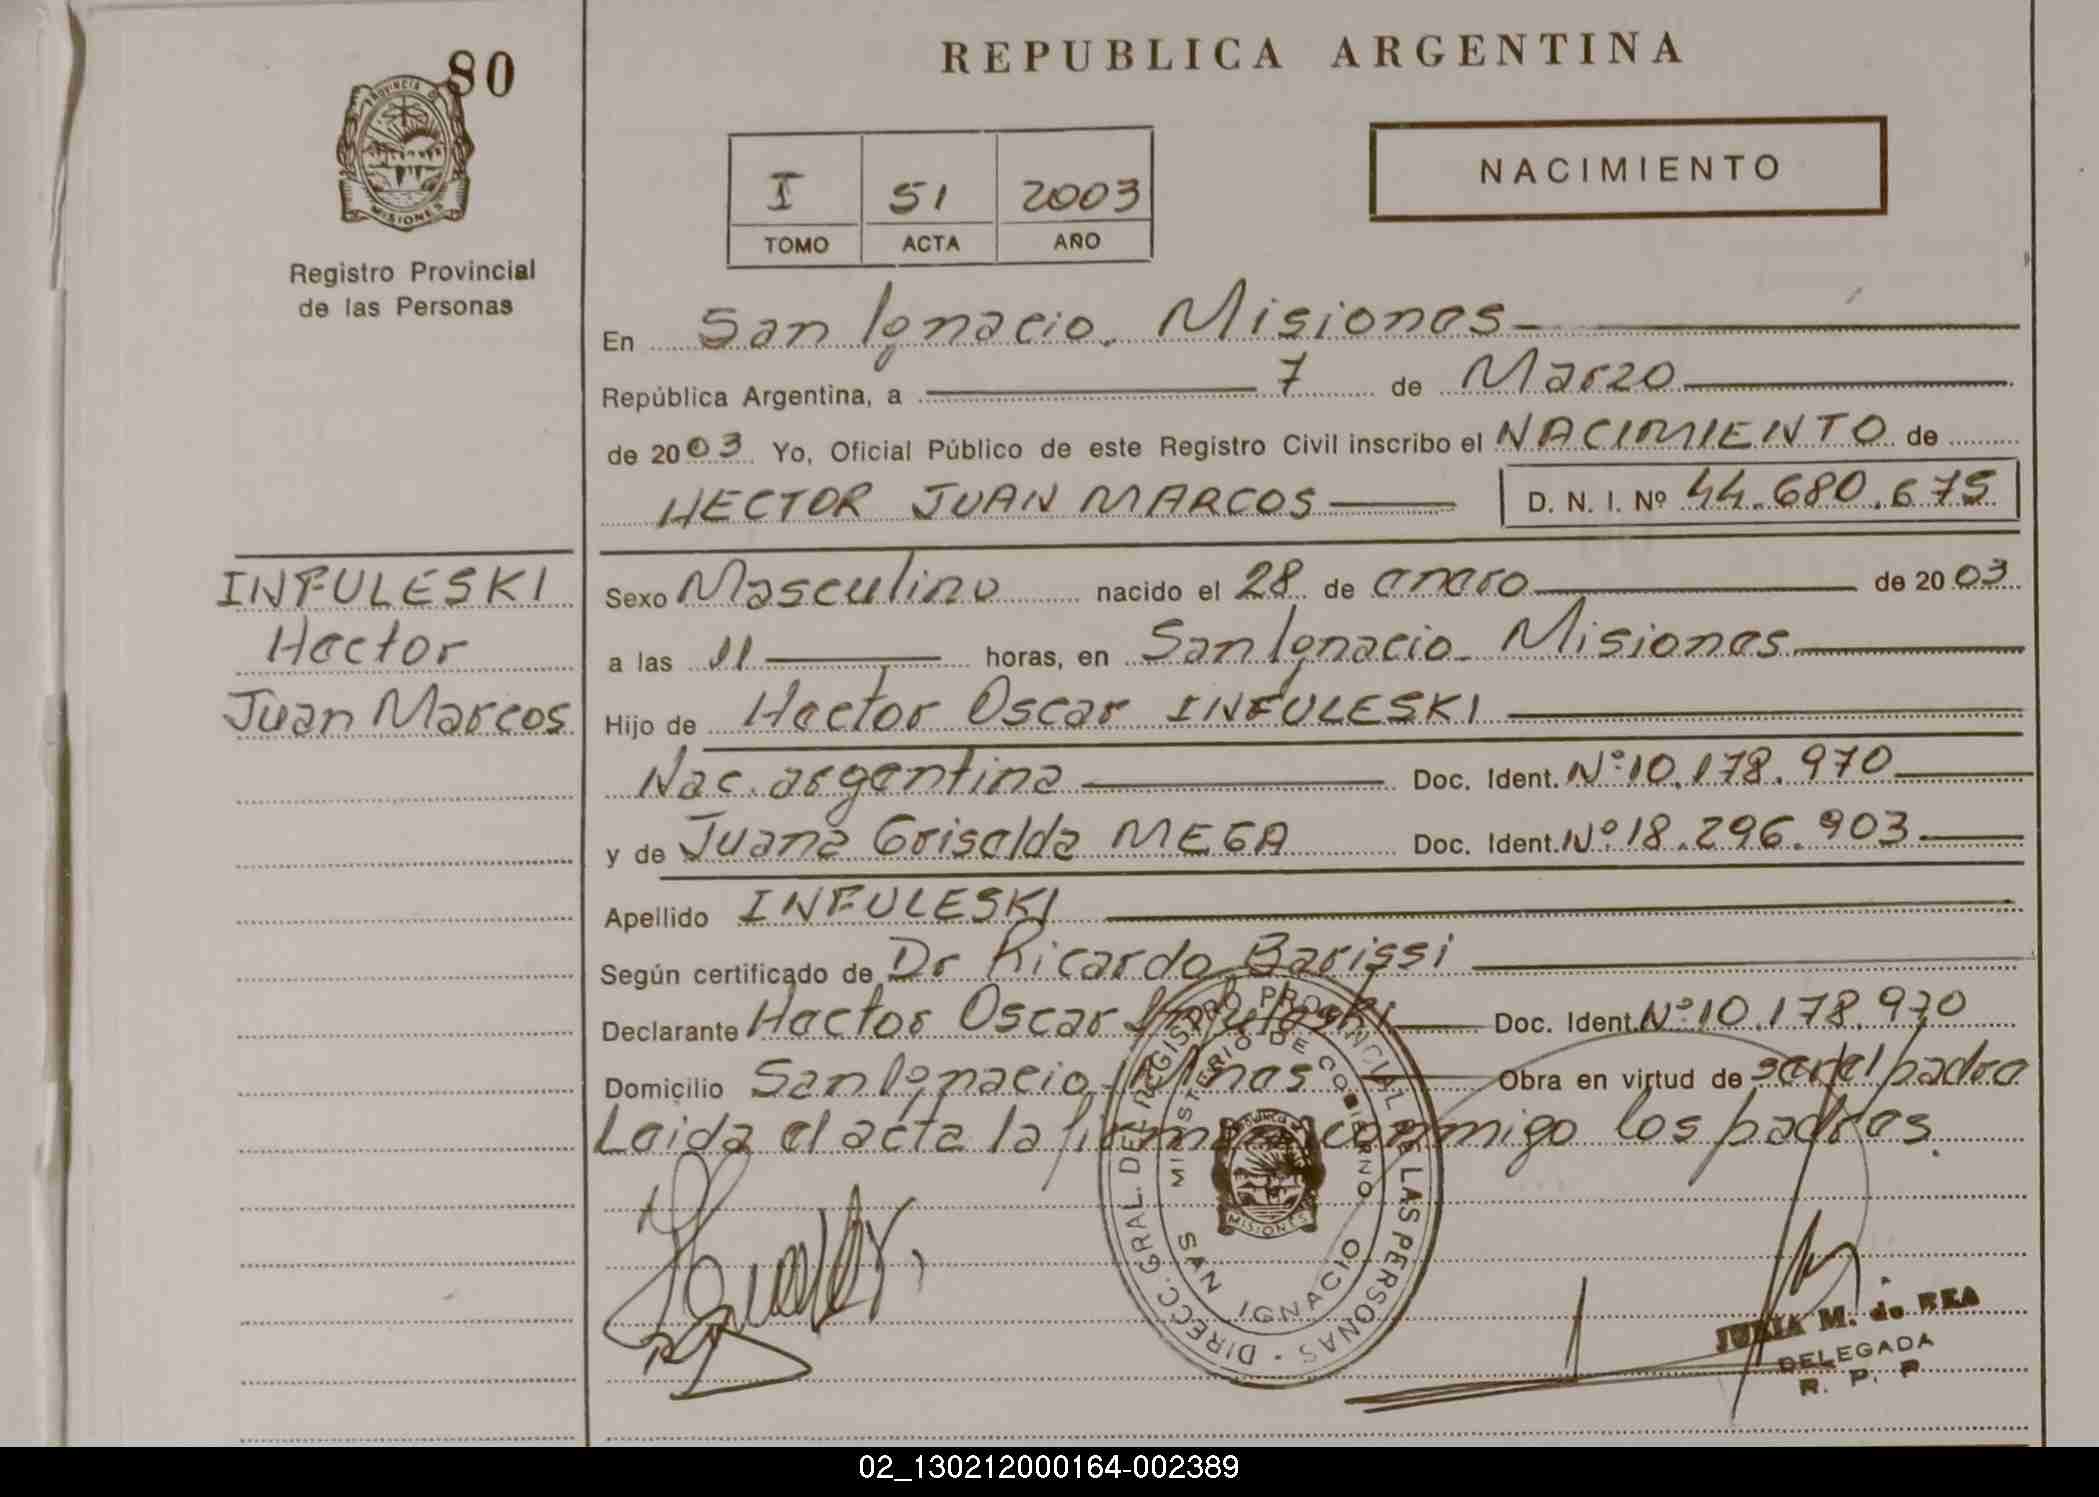 80
PROVINCIA DE
MISIONES
Registro Provincial
de las Personas
REPUBLICA ARGENTINA
I 51 2003
TOMO ACTA AÑO
NACIMIENTO
En San Ignacio. Misiones
República Argentina, a 7 de Marzo
de 2003 Yo, Oficial Público de este Registro Civil inscribo el NACIMIENTO de
HECTOR JUAN MARCOS D. N. I. Nº 44.680.675
INFULESKI
Hector
Juan Marcos
Sexo Masculino nacido el 28 de enero de 2003
a las 11 horas, en San Ignacio - Misiones
Hijo de Hector Oscar INFULESKI
Nac. argentina Doc. Ident. Nº 10.178.970
y de Juana Griselda MEGA Doc. Ident. Nº 18.296.903
Apellido INFULESKI
Según certificado de Dr Ricardo Barissi
Declarante Hector Oscar Infuleski Doc. Ident. Nº 10.178.970
Domicilio San Ignacio, Mnes Obra en virtud de ser el padre
Leida el acta la firman conmigo los padres.
DIRECC. GRAL. DEL REGISTRO PROVINCIAL DE LAS PERSONAS -
MINISTERIO DE GOBIERNO
SAN IGNACIO
MISIONES
JULIA M. de REA
DELEGADA
R. P. P
02_130212000164-002389